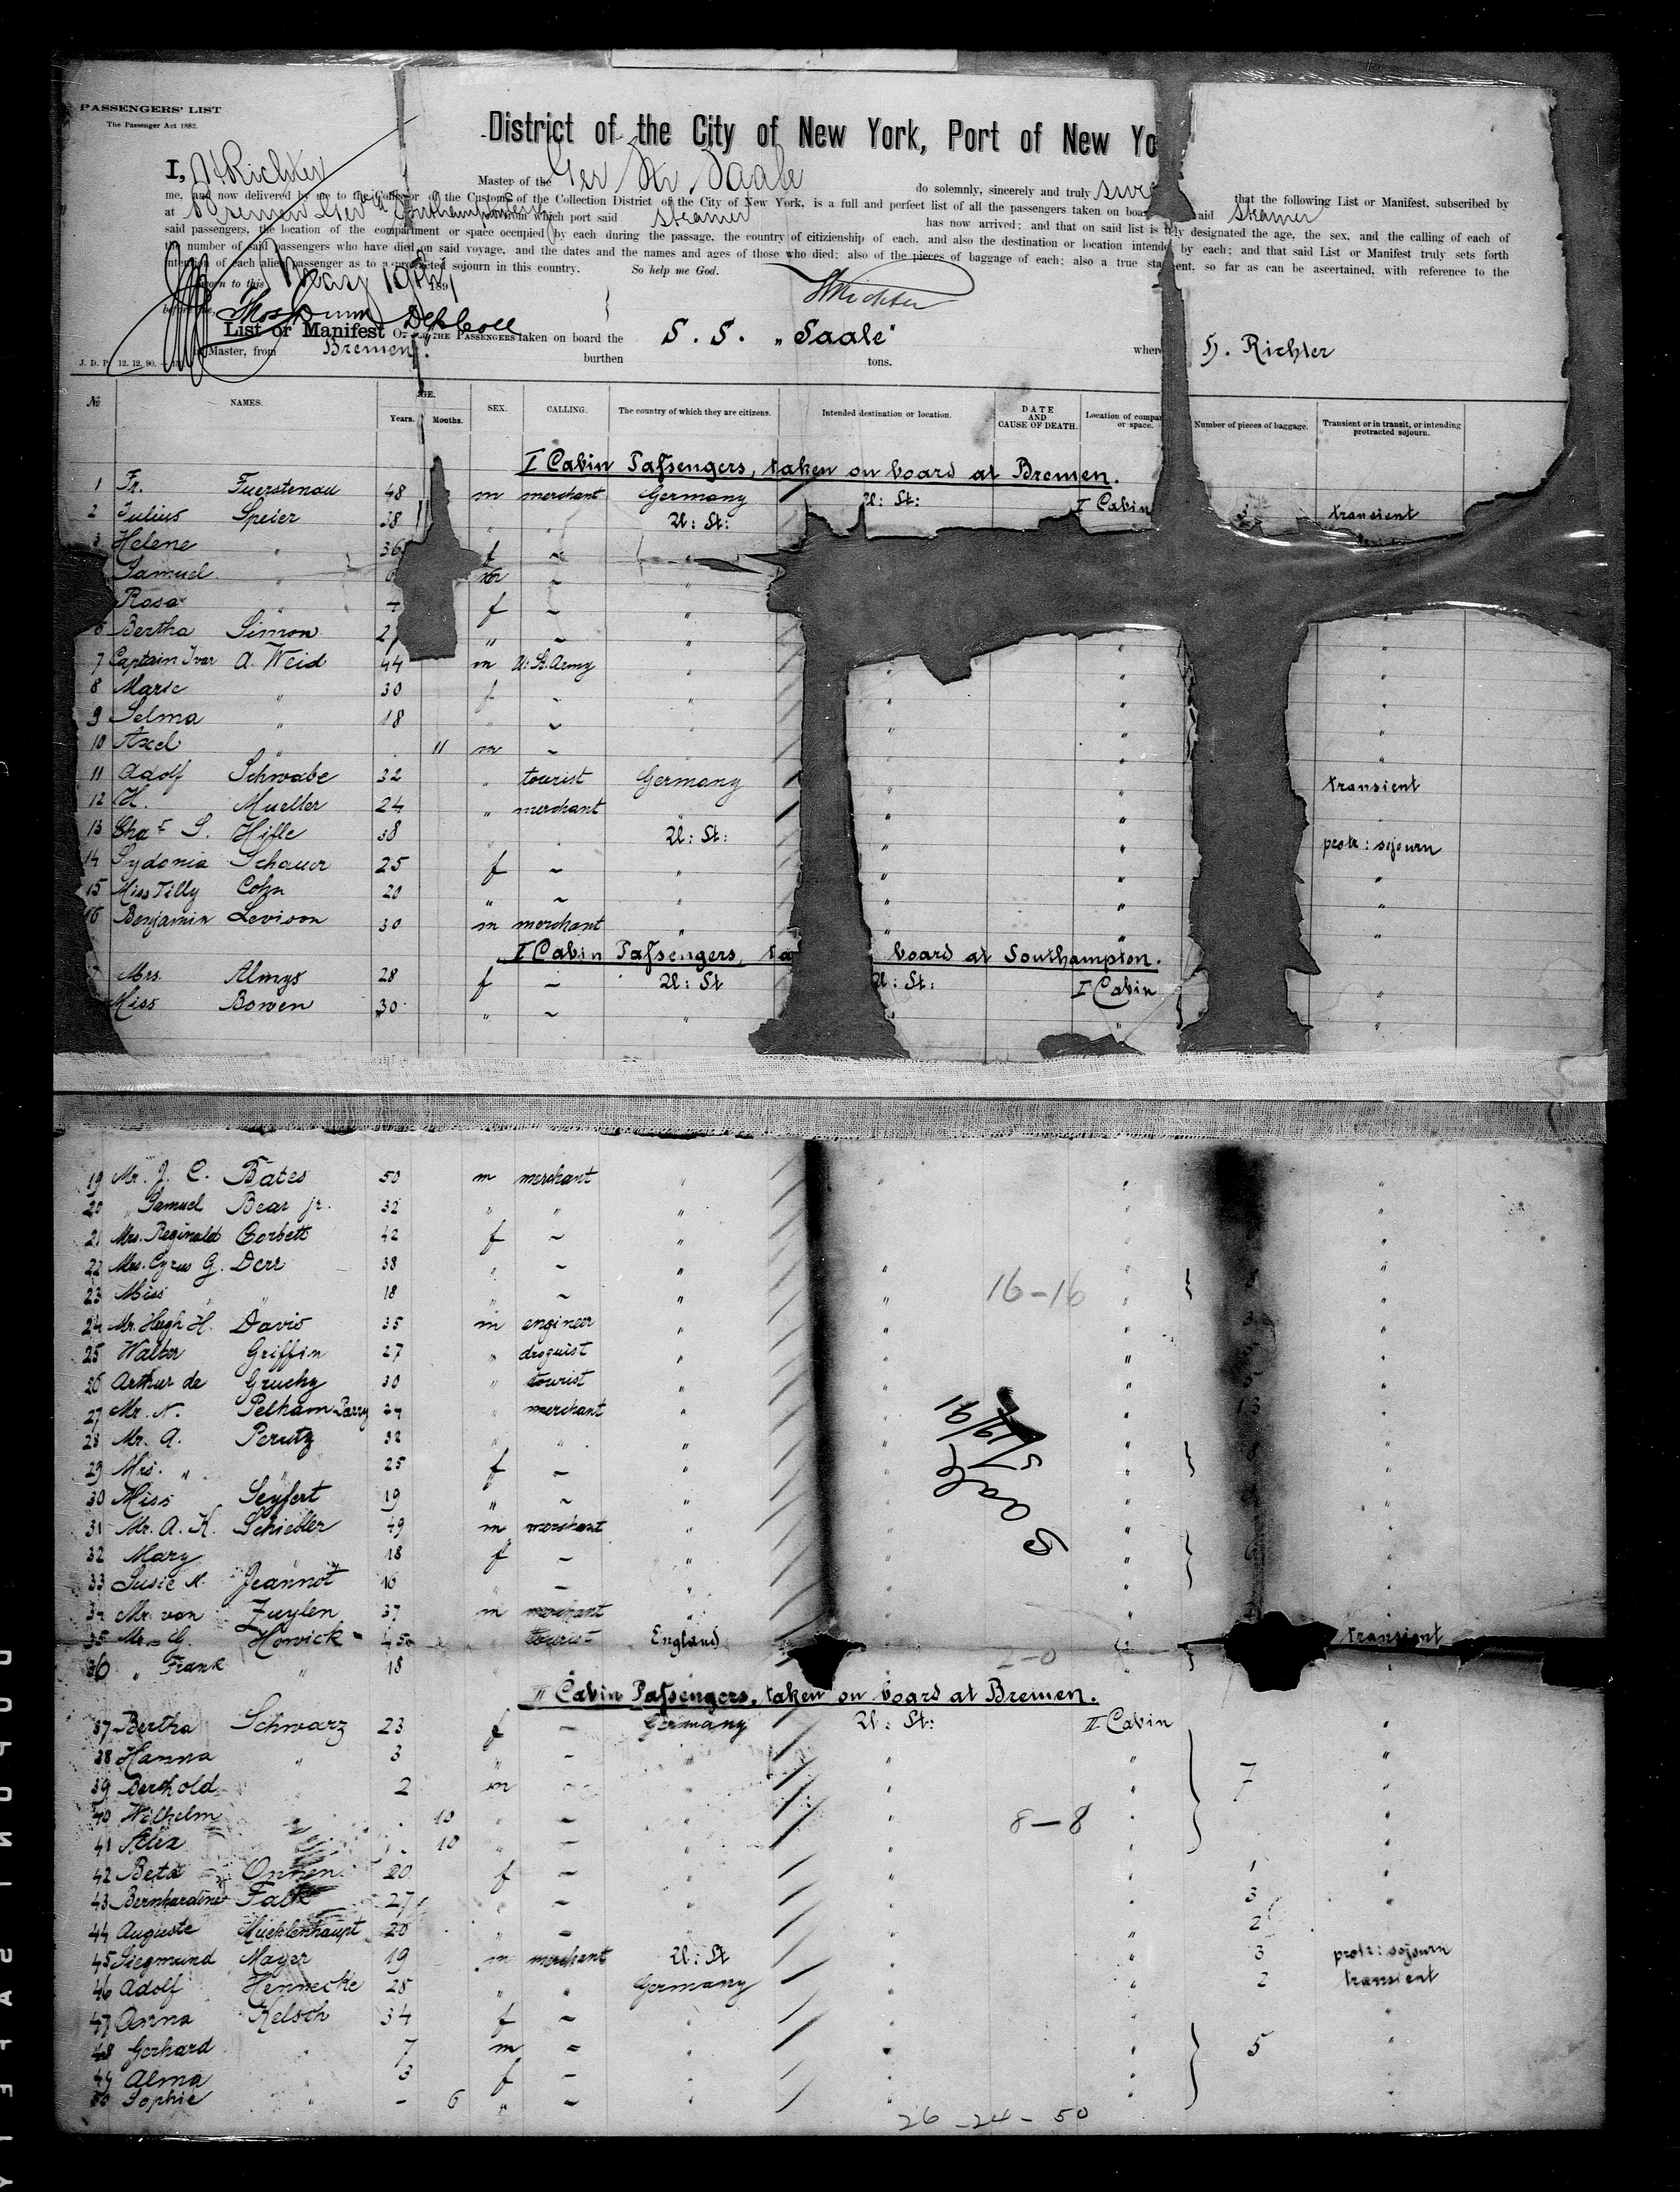 PASSENGERS' LIST
The Passenger Act 1882.
District of the City of New York, Port of New Yo
I, H Richter Master of the Ger Str Saale do solemnly, sincerely and truly swear that the following List or Manifest, subscribed by
me, and now delivered by me to the Collector of the Customs of the Collection District of the City of New York, is a full and perfect list of all the passengers taken on board said steamer
at Bremen Southampton from which port said steamer has now arrived; and that on said list is truly designated the age, the sex, and the calling of each of
said passengers, the location of the compartment or space occupied by each during the passage, the country of citizienship of each, and also the destination or location intended by each; and that said List or Manifest truly sets forth
the number of said passengers who have died on said voyage, and the dates and the names and ages of those who died; also of the pieces of baggage of each; also a true statement, so far as can be ascertained, with reference to the
intention of each alien passenger as to a protracted sojourn in this country. So help me God.
Sworn to this May 19th 1891 H Richter
before me, Thos Dunn Dep Coll
List or Manifest OF ALL THE PASSENGERS taken on board the S. S. „Saale"
Master, from Bremen. burthen tons. H. Richter
J. D. P. 12. 12. 90.
№ NAMES. AGE. Years. Months. SEX. CALLING. The country of which they are citizens. Intended destination or location. DATE AND CAUSE OF DEATH. Location of compar or space. Number of pieces of baggage. Transient or in transit, or intending protracted sojourn.
I Cabin Passengers, taken on board at Bremen.
1 Fr. Fuerstenau 48 m merchant Germany U: St: I Cabin 3 transient
2 Julius Speier 38 " " U: St:
3 Helene " 36 f ~ "
Samuel " m ~ "
Rosa f ~ "
6 Bertha Simon 2 " ~ " "
7 Captain Ivar A. Weid 44 m U: St. Army " " "
8 Marie " 30 f ~ " " "
9 Selma " 18 " ~ " " "
10 Axel " 11 m ~ " " "
11 Adolf Schwabe 32 " tourist Germany " " transient
12 H. Mueller 24 " merchant " " " "
13 Chas S. Hifle 38 " " U: St: " " protr: sojourn
14 Sydonia Schauer 25 f ~ " " " "
15 Miss Tilly Cohn 20 " ~ " " " "
16 Benjamin Levison 30 m merchant " " " "
I Cabin Passengers, ta board at Southampton.
Mrs. Almys 28 f ~ U: St U: St: I Cabin "
Miss Bowen 30 " ~ " " "
19 Mr. J. C. Bates 50 m merchant " " " "
20 " Samuel Bear jr. 32 " " " "
21 Mrs. Reginald Corbett 42 f ~ " " "
22 Mrs. Cyrus G. Derr 38 " ~ " " " 8 "
23 Miss " 18 " ~ " " 16-16 " "
24 Mr. Hugh H. Davis 35 m engineer " " " 3 "
25 Walter Griffin 27 " droguist " " " "
26 Arthur de Gruchy 30 " tourist " " " 5 "
27 Mr. N. Pelham Parry " merchant " " " 13 "
28 Mr. A. Perutz 32 " " " " " 8 "
29 Mrs. " " 25 f ~ " " " "
30 Miss Seyfert 19 " ~ " " " "
31 Mr. A. K. Schiebler 49 m merchant " " " "
32 Mary " 18 f ~ " " " 6 "
33 Susie M. Jeannot 16 " ~ " " " "
34 Mr. van Zuylen 37 m merchant " " " "
Saale
5/19/91
35 Mr. G. Howick 45 " tourist England " transient
36 " Frank " 18 2-0 "
II Cabin Passengers, taken on board at Bremen.
37 Bertha Schwarz 23 f ~ Germany U: St: II Cabin "
38 Hanna " 3 " ~ " " " "
39 Berthold 2 m ~ " " " 7 "
40 Wilhelm " 10 " ~ " " 8-8 " "
41 Alex 10 " ~ " " " "
42 Beta Onnen 20 f ~ " " " 1 "
43 Bernhardine Falk 27 " ~ " " " 3 "
44 Auguste Muehlenhaupt 20 " ~ " " " 2
45 Siegmund Mayer 19 m merchant U: St " " 3 protr: sojourn
46 Adolf Hennecke 28 " " Germany " " 2 transient
47 Anna Kelsch 34 f ~ " " " "
48 Gerhard " 7 m ~ " " " 5 "
49 Alma 3 f ~ " " " "
50 Sophie " - 6 " ~ " " " "
26-24-50